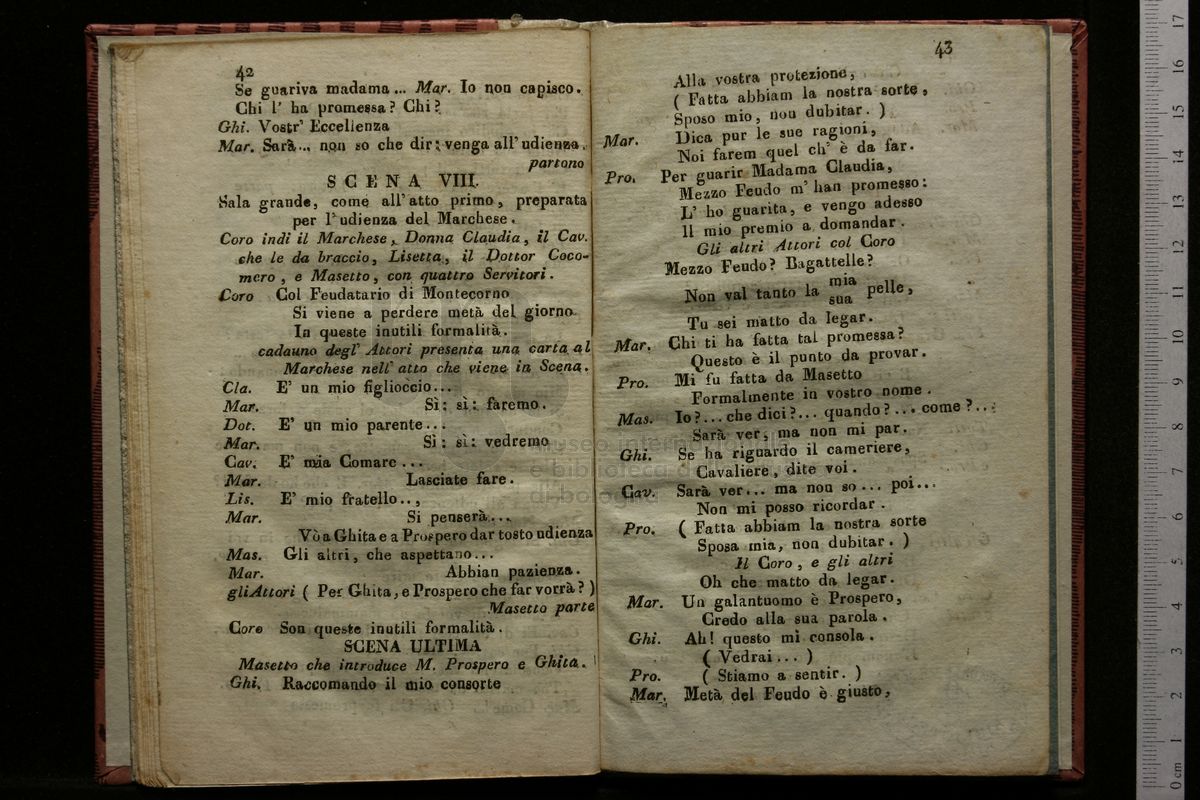 42
Se guariva madama... Mar. Io non capisco.
Chi l' ha promessa? Chi?
Ghi. Vostr' Eccellenza
Mar. Sarà... non so che dir: venga all' udienza.
partono
SCENA VIII.
Sala grande, come all' atto primo, preparata
per l' udienza del Marchese.
Coro indi il Marchese, Donna Claudia, il Cav.
che le da braccio, Lisetta, il Dottor Coco-
mero, e Masetto, con quattro Servitori.
Coro Col Feudatario di Montecorno
Si viene a perdere metà del giorno
In queste inutili formalità.
cadauno degl' Attori presenta una carta al
Marchese nell' atto che viene in Scena.
Cla. E' un mio figlioccio...
Mar. Sì: sì: faremo.
Dot. E' un mio parente...
Mar. Si: sì: vedremo
Cav. E' mia Comare...
Mar. Lasciate fare.
Lis. E' mio fratello..,
Mar. Si penserà...
Vò a Ghita e a Prospero dar tosto udienza
Mas. Gli altri, che aspettano...
Mar. Abbian pazienza.
gli Attori ( Per Ghita, e Prospero che far vorrà? )
Masetto parte
Coro Son queste inutili formalità.
SCENA ULTIMA
Masetto che introduce M. Prospero e Ghita.
Ghi. Raccomando il mio consorte
43
Alla vostra protezione,
( Fatta abbiam la nostra sorte,
Sposo mio, non dubitar. )
Mar. Dica pur le sue ragioni,
Noi farem quel ch' è da far.
Pro. Per guarir Madama Claudia,
Mezzo Feudo m' han promesso:
L' ho guarita, e vengo adesso
Il mio premio a domandar.
Gli altri Attori col Coro
Mezzo Feudo? Bagattelle?
Non val tanto la mia pelle,
sua
Tu sei matto da legar.
Mar. Chi ti ha fatta tal promessa?
Questo è il punto da provar.
Pro. Mi fu fatta da Masetto
Formalmente in vostro nome.
Mas. Io?... che dici?... quando?... come?...
Sarà ver, ma non mi par.
Ghi. Se ha riguardo il cameriere,
Cavaliere, dite voi.
Cav. Sarà ver... ma non so... poi...
Non mi posso ricordar.
Pro. ( Fatta abbiam la nostra sorte
Sposa mia, non dubitar. )
Il Coro, e gli altri
Oh che matto da legar.
Mar. Un galantuomo è Prospero,
Credo alla sua parola.
Ghi. Ah! questo mi consola.
( Vedrai... )
Pro. ( Stiamo a sentir. )
Mar. Metà del Feudo è giusto,
museo internazionale
e biblioteca d
di bologna
0 cm 1 2 3 4 5 6 7 8 9 10 11 12 13 14 15 16 17